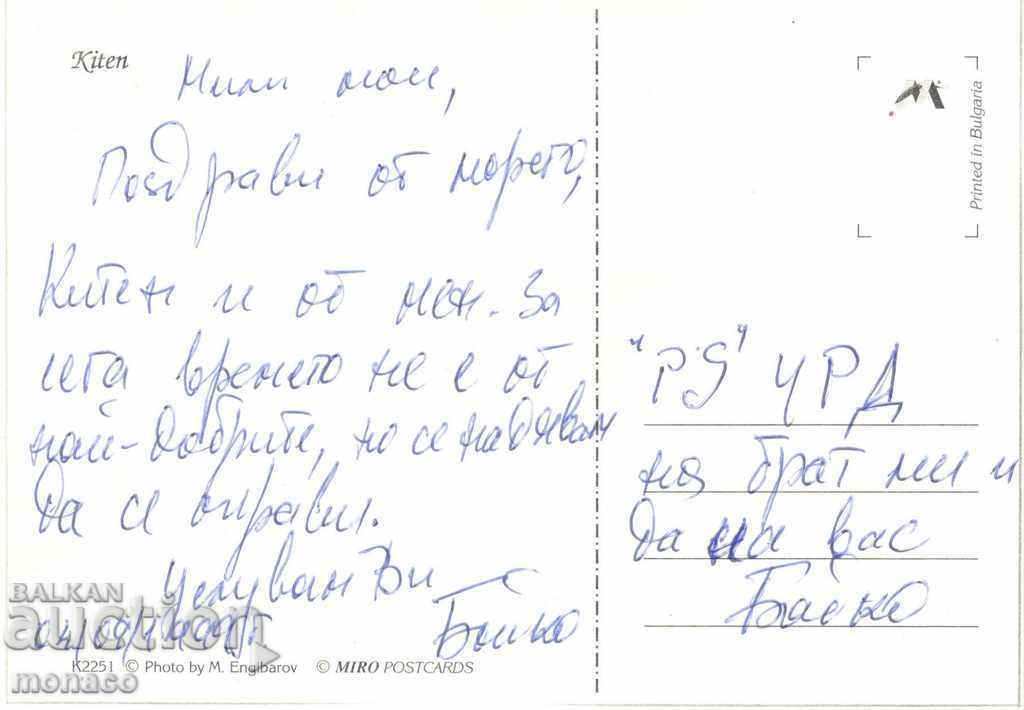 Kiten
Мили мои,
Поздрави от морето,
Китен и от мен. За
сега времето не е от
най-добрите, но се надявам
да се оправи.
Целувам Ви
Бойко
K2251 © Photo by M. Engibarov © MIRO POSTCARDS
Printed in Bulgaria
"PS" ЧРД
на брат ми и
да на вас
Бойко
BALKAN
auction
monaco